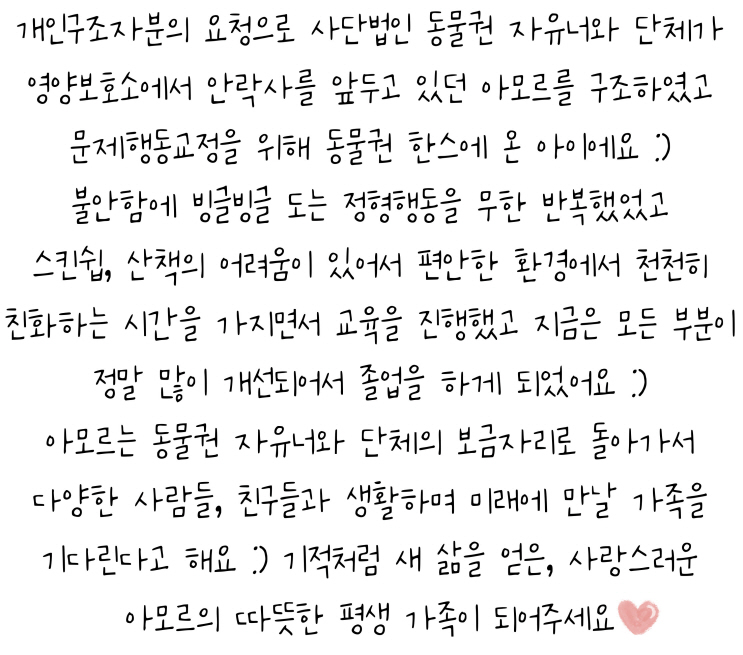 개인구조자분의 요청으로 사단법인 동물권 자유너와 단체가
영양보호소에서 안락사를 앞두고 있던 아모르를 구조하였고
문제행동교정을 위해 동물권 한스에 온 아이에요 :)
불안함에 빙글빙글 도는 정형행동을 무한 반복했었고
스킨쉽, 산책의 어려움이 있어서 편안한 환경에서 천천히
친화하는 시간을 가지면서 교육을 진행했고 지금은 모든 부분이
정말 많이 개선되어서 졸업을 하게 되었어요 :)
아모르는 동물권 자유너와 단체의 보금자리로 돌아가서
다양한 사람들, 친구들과 생활하며 미래에 만날 가족을
기다린다고 해요 :) 기적처럼 새 삶을 얻은, 사랑스러운
아모르의 따뜻한 평생 가족이 되어주세요